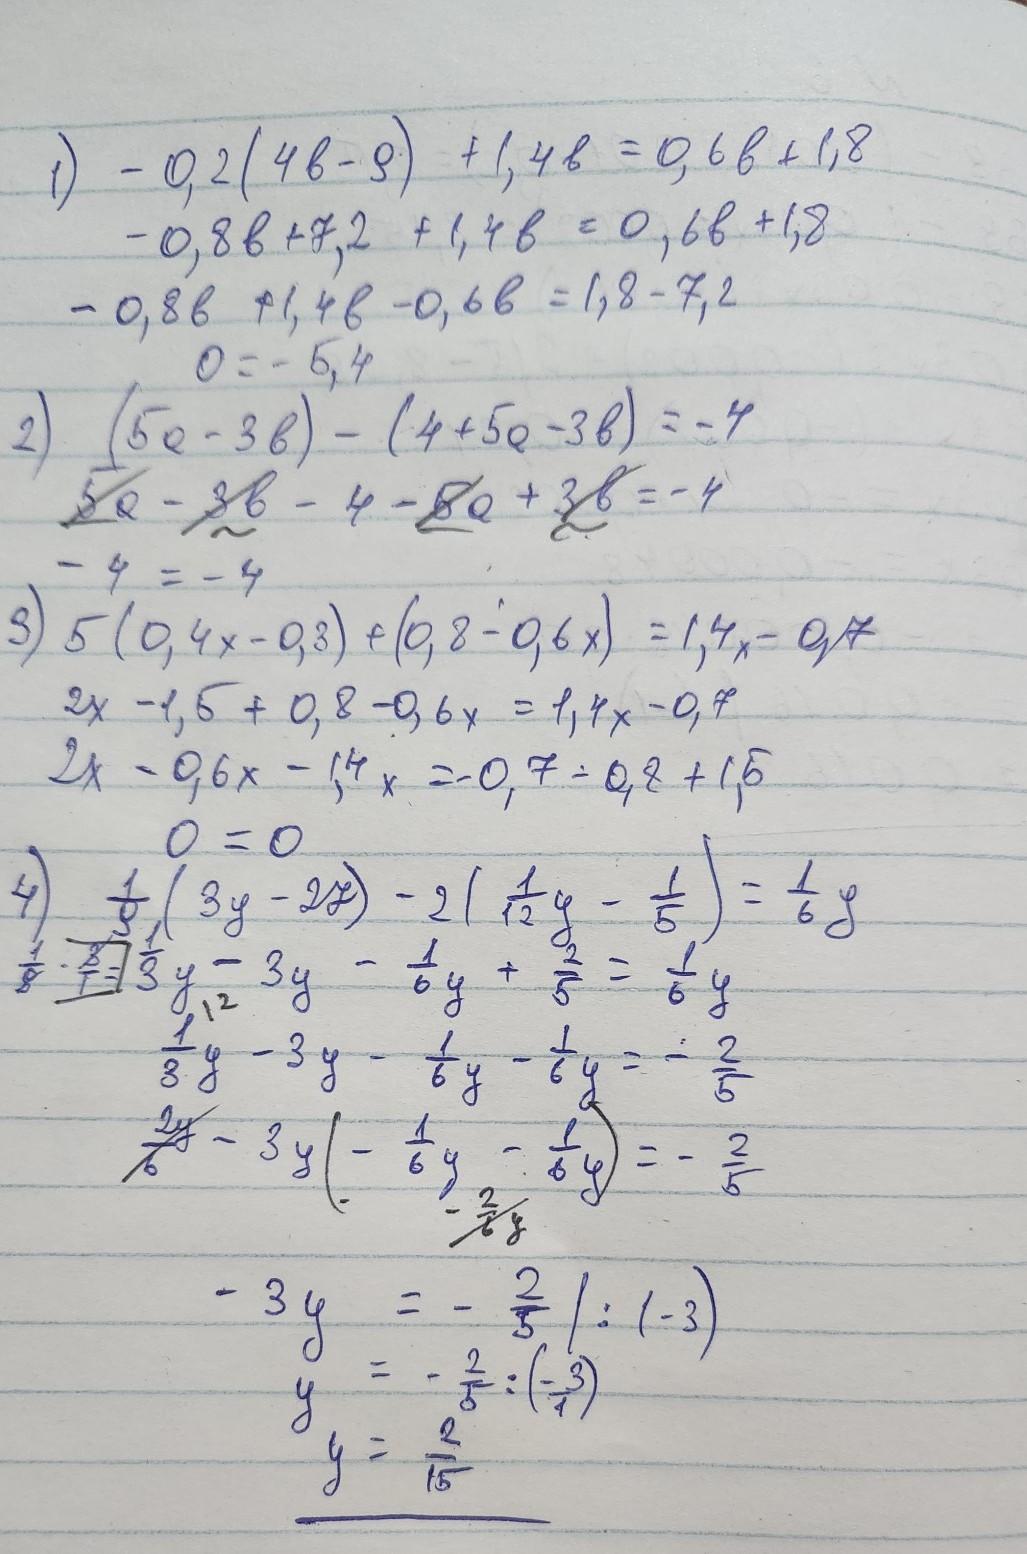 1) - 0,2(4в - 9) + 1,4в = 0,6в + 1,8
- 0,8в + 7,2 + 1,4в = 0,6в + 1,8
- 0,8в + 1,4в - 0,6в = 1,8 - 7,2
0 = - 5,4
2) (5a - 3в) - (4 + 5a - 3в) = - 4
5a - 3в - 4 - 5a + 3в = - 4
- 4 = - 4
3) 5(0,4x - 0,3) + (0,8 - 0,6x) = 1,4x - 0,7
2x - 1,5 + 0,8 - 0,6x = 1,4x - 0,7
2x - 0,6x - 1,4x = - 0,7 - 0,8 + 1,5
0 = 0
4) 1/9 (3y - 27) - 2(1/12 y - 1/5) = 1/6 y
1/3 y - 3y - 1/6 y + 2/5 = 1/6 y
12
1/3 y - 3y - 1/6 y - 1/6 y = - 2/5
2y/6 - 3y (- 1/6 y - 1/6 y) = - 2/5
- 2/6 y
- 3y = - 2/5 | : (-3)
y = - 2/5 : (-3/1)
y = 2/15